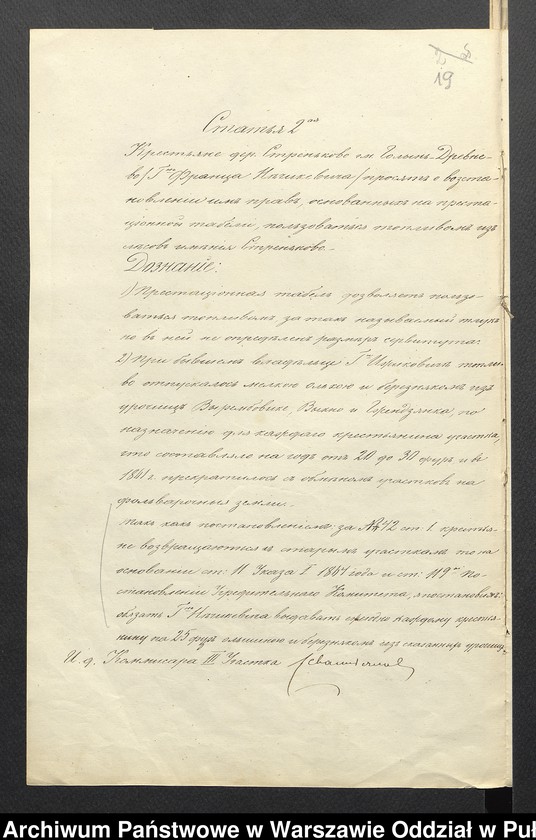 19
Статья 2ая
Крестьяне дер. Стреньково им Голынь-Древне-
во /Гна Франца Ицикевича/ просятъ о возста-
новленіи имъ правъ, основанныхъ на преста-
ціонной табели, пользоваться топливомъ изъ
лесовъ именія Стреньково.
Дознаніе:
1) Престаціонная табель дозволяетъ пользо-
ваться топливомъ за такъ называемый
но въ ней не определенъ размеръ сервитута.
2) При бывшемъ владельце Гне Ицкевиче топли-
во отпускалось мелкою ольхою и березнякомъ изъ
урочищъ Вырембовизе, Выкно и по
назначенію для каждаго крестьянина участка,
что составляло на годъ отъ 20 до 30 фуръ и въ
1861 г. прекратилось съ обменомъ участковъ на
фольварочныя земли.
Такъ какъ постановленіемъ за № 42 ст 1 крестья-
не возвращаются къ старымъ участкамъ то на
основаніи ст: 11 Указа I 1864 года и ст: 119й по-
становленій Учредительнаго Комитета, я постановилъ:
обязать Гна Ицикевича выдавать каждому крестья-
нину по 25 фуръ ольшиною и березнякомъ изъ сказанныхъ урочищъ.
И. д. Коммисара III Участка
Archiwum Państwowe w Warszawie Oddział w Puł